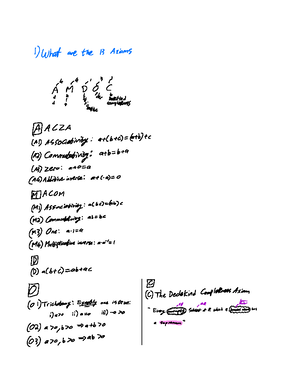 1) What are the 13 Axioms
A M D O C
A ACZA
(A1) Associativity: a+(b+c)=(a+b)+c
(A2) Commutativity: a+b=b+a
(A3) Zero: a+0=a
(A4) Additive inverse: a+(-a)=0
M ACOM
(M1) Associativity: a(bc)=(ab)c
(M2) Commutativity: ab=bc
(M3) One: a·1=a
(M4) Multiplicative inverse: a·a⁻¹=1
D
(D) a(b+c)=ab+ac
O
(O1) Trichotomy: Exactly one is true:
i) a>0 ii) a=0 iii) -a>0
(O2) a>0, b>0 ⇒ a+b>0
(O3) a>0, b>0 ⇒ ab>0
C
(C) The Dedekind Completeness Axiom
"Every subset of R which is
a supremum"